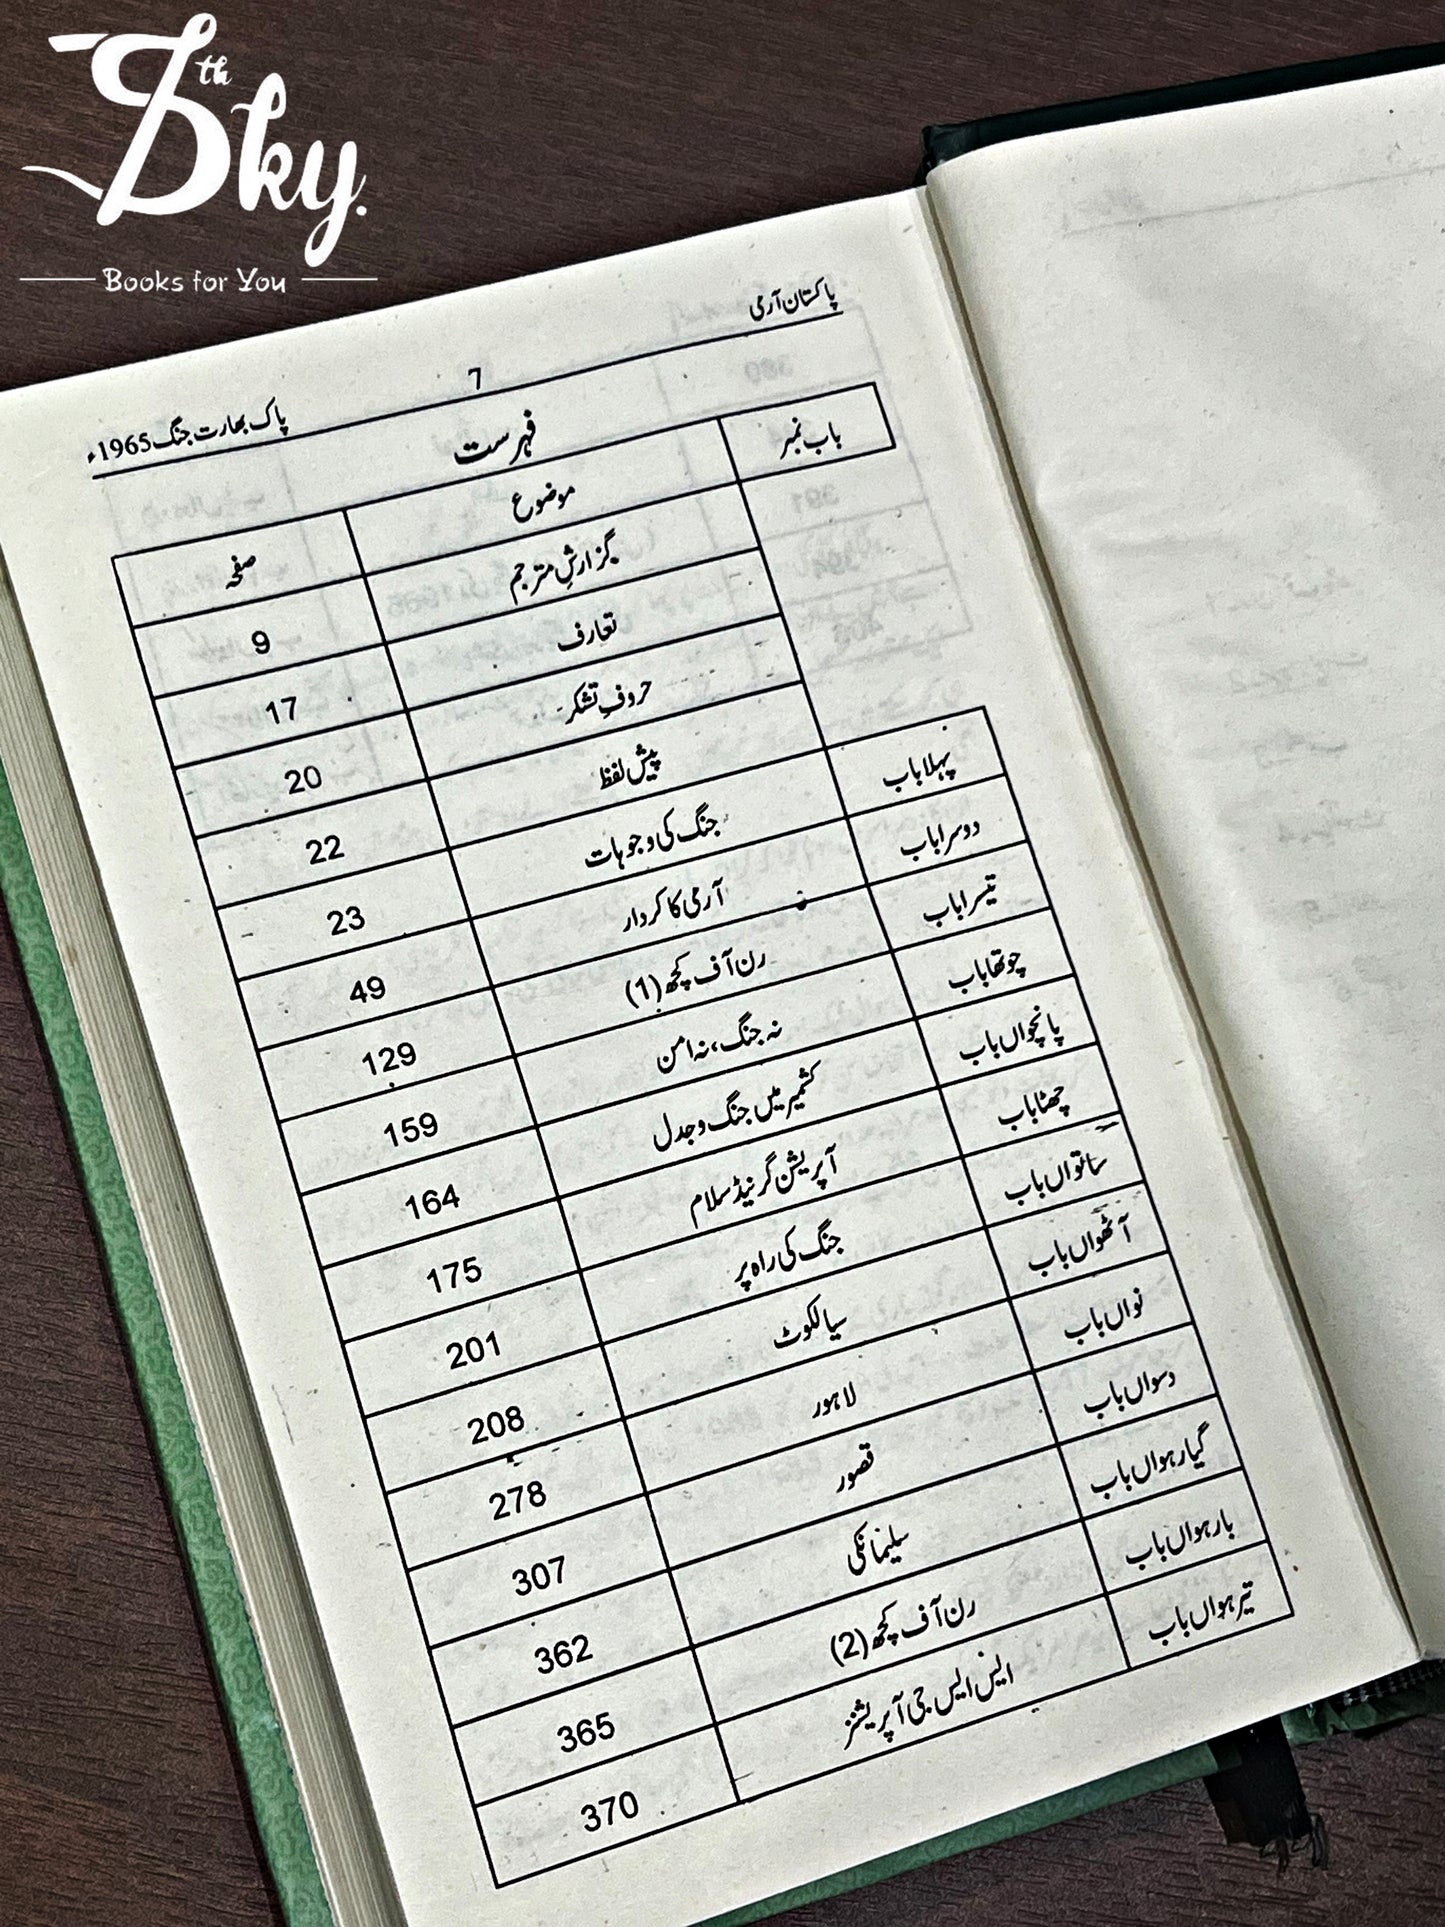 7th Sky.
Books for You
پاکستان آرمی 7 پاک بھارت جنگ 1965ء
فہرست
باب نمبر موضوع صفحہ
گزارشِ مترجم 9
تعارف 17
حروفِ تشکر 20
پیش لفظ 22
پہلا باب جنگ کی وجوہات 23
دوسرا باب آرمی کا کردار 49
تیسرا باب رن آف کچھ (1) 129
چوتھا باب نہ جنگ، نہ امن 159
پانچواں باب کشمیر میں جنگ و جدل 164
چھٹا باب آپریشن گرینڈ سلام 175
ساتواں باب جنگ کی راہ پر 201
آٹھواں باب سیالکوٹ 208
نواں باب لاہور 278
دسواں باب قصور 307
گیارہواں باب سلیمانکی 362
بارہواں باب رن آف کچھ (2) 365
تیرہواں باب ایس ایس جی آپریشنز 370